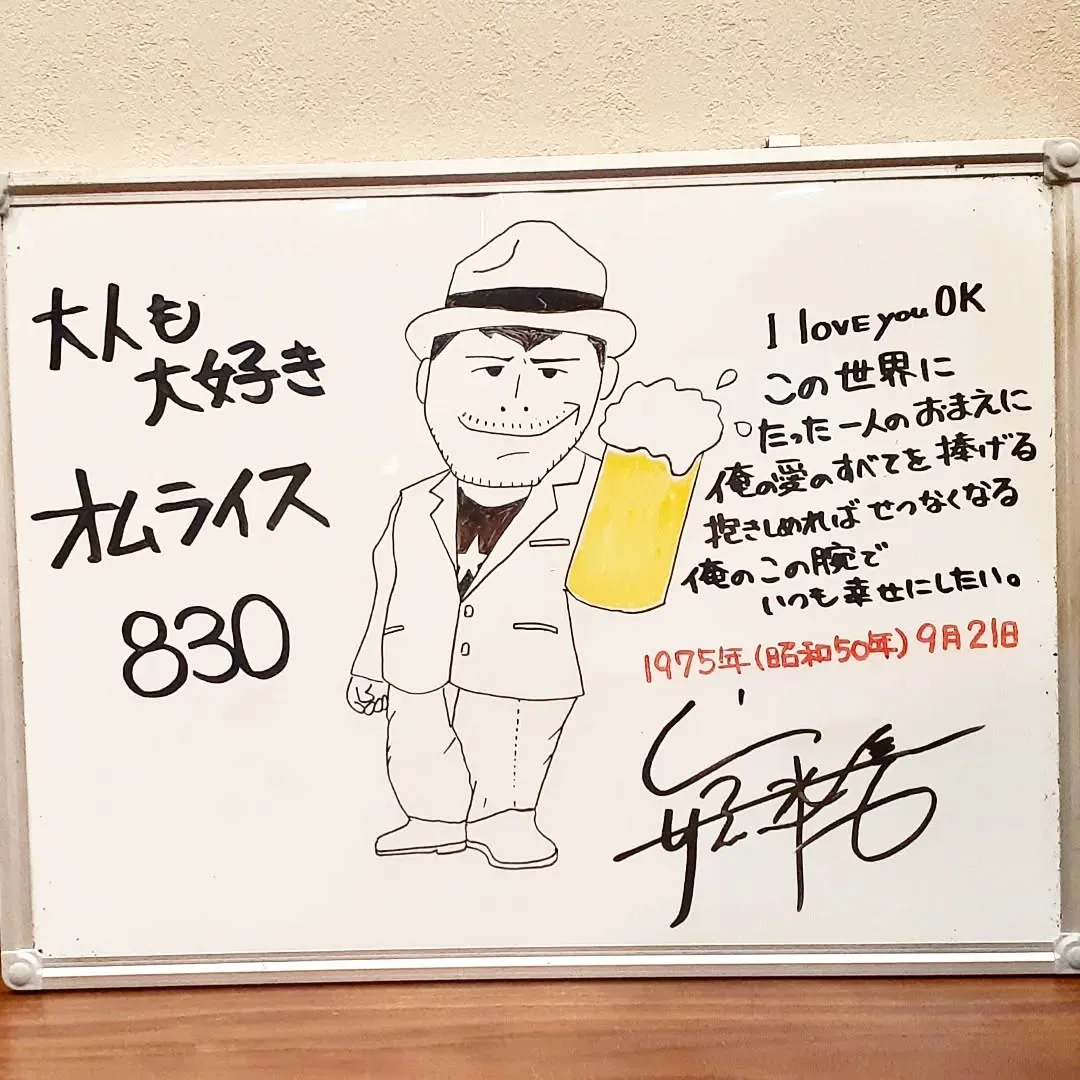 大人も
大好き
オムライス
830
I love you OK
この世界に
たった一人のおまえに
俺の愛のすべてを捧げる
抱きしめれば せつなくなる
俺のこの腕で
いつも幸せにしたい。
1975年(昭和50年)9月21日